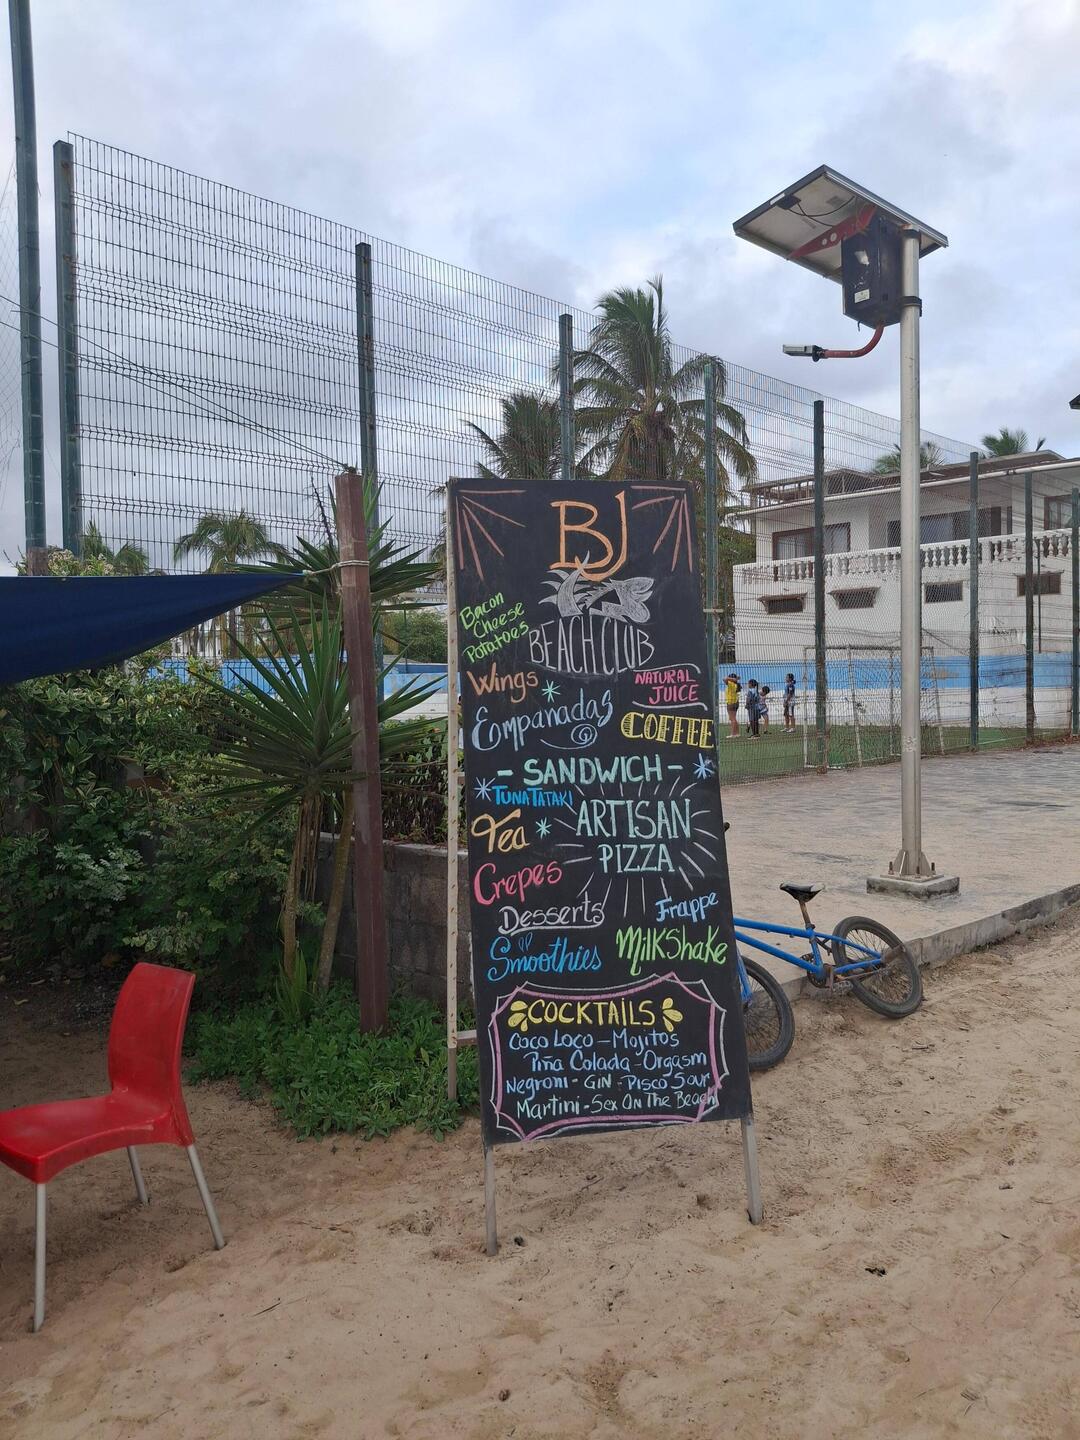 BJ
BEACH CLUB
Bacon
Cheese
Potatoes
Wings
NATURAL
JUICE
Empanadas
COFFEE
- SANDWICH -
TUNA TATAKI
ARTISAN
PIZZA
Tea
Crepes
Desserts
Frappe
Smoothies
MilkShake
COCKTAILS
Coco Loco - Mojitos
Piña Colada - Orgasm
Negroni - Gin - Pisco Sour
Martini - Sex On The Beach